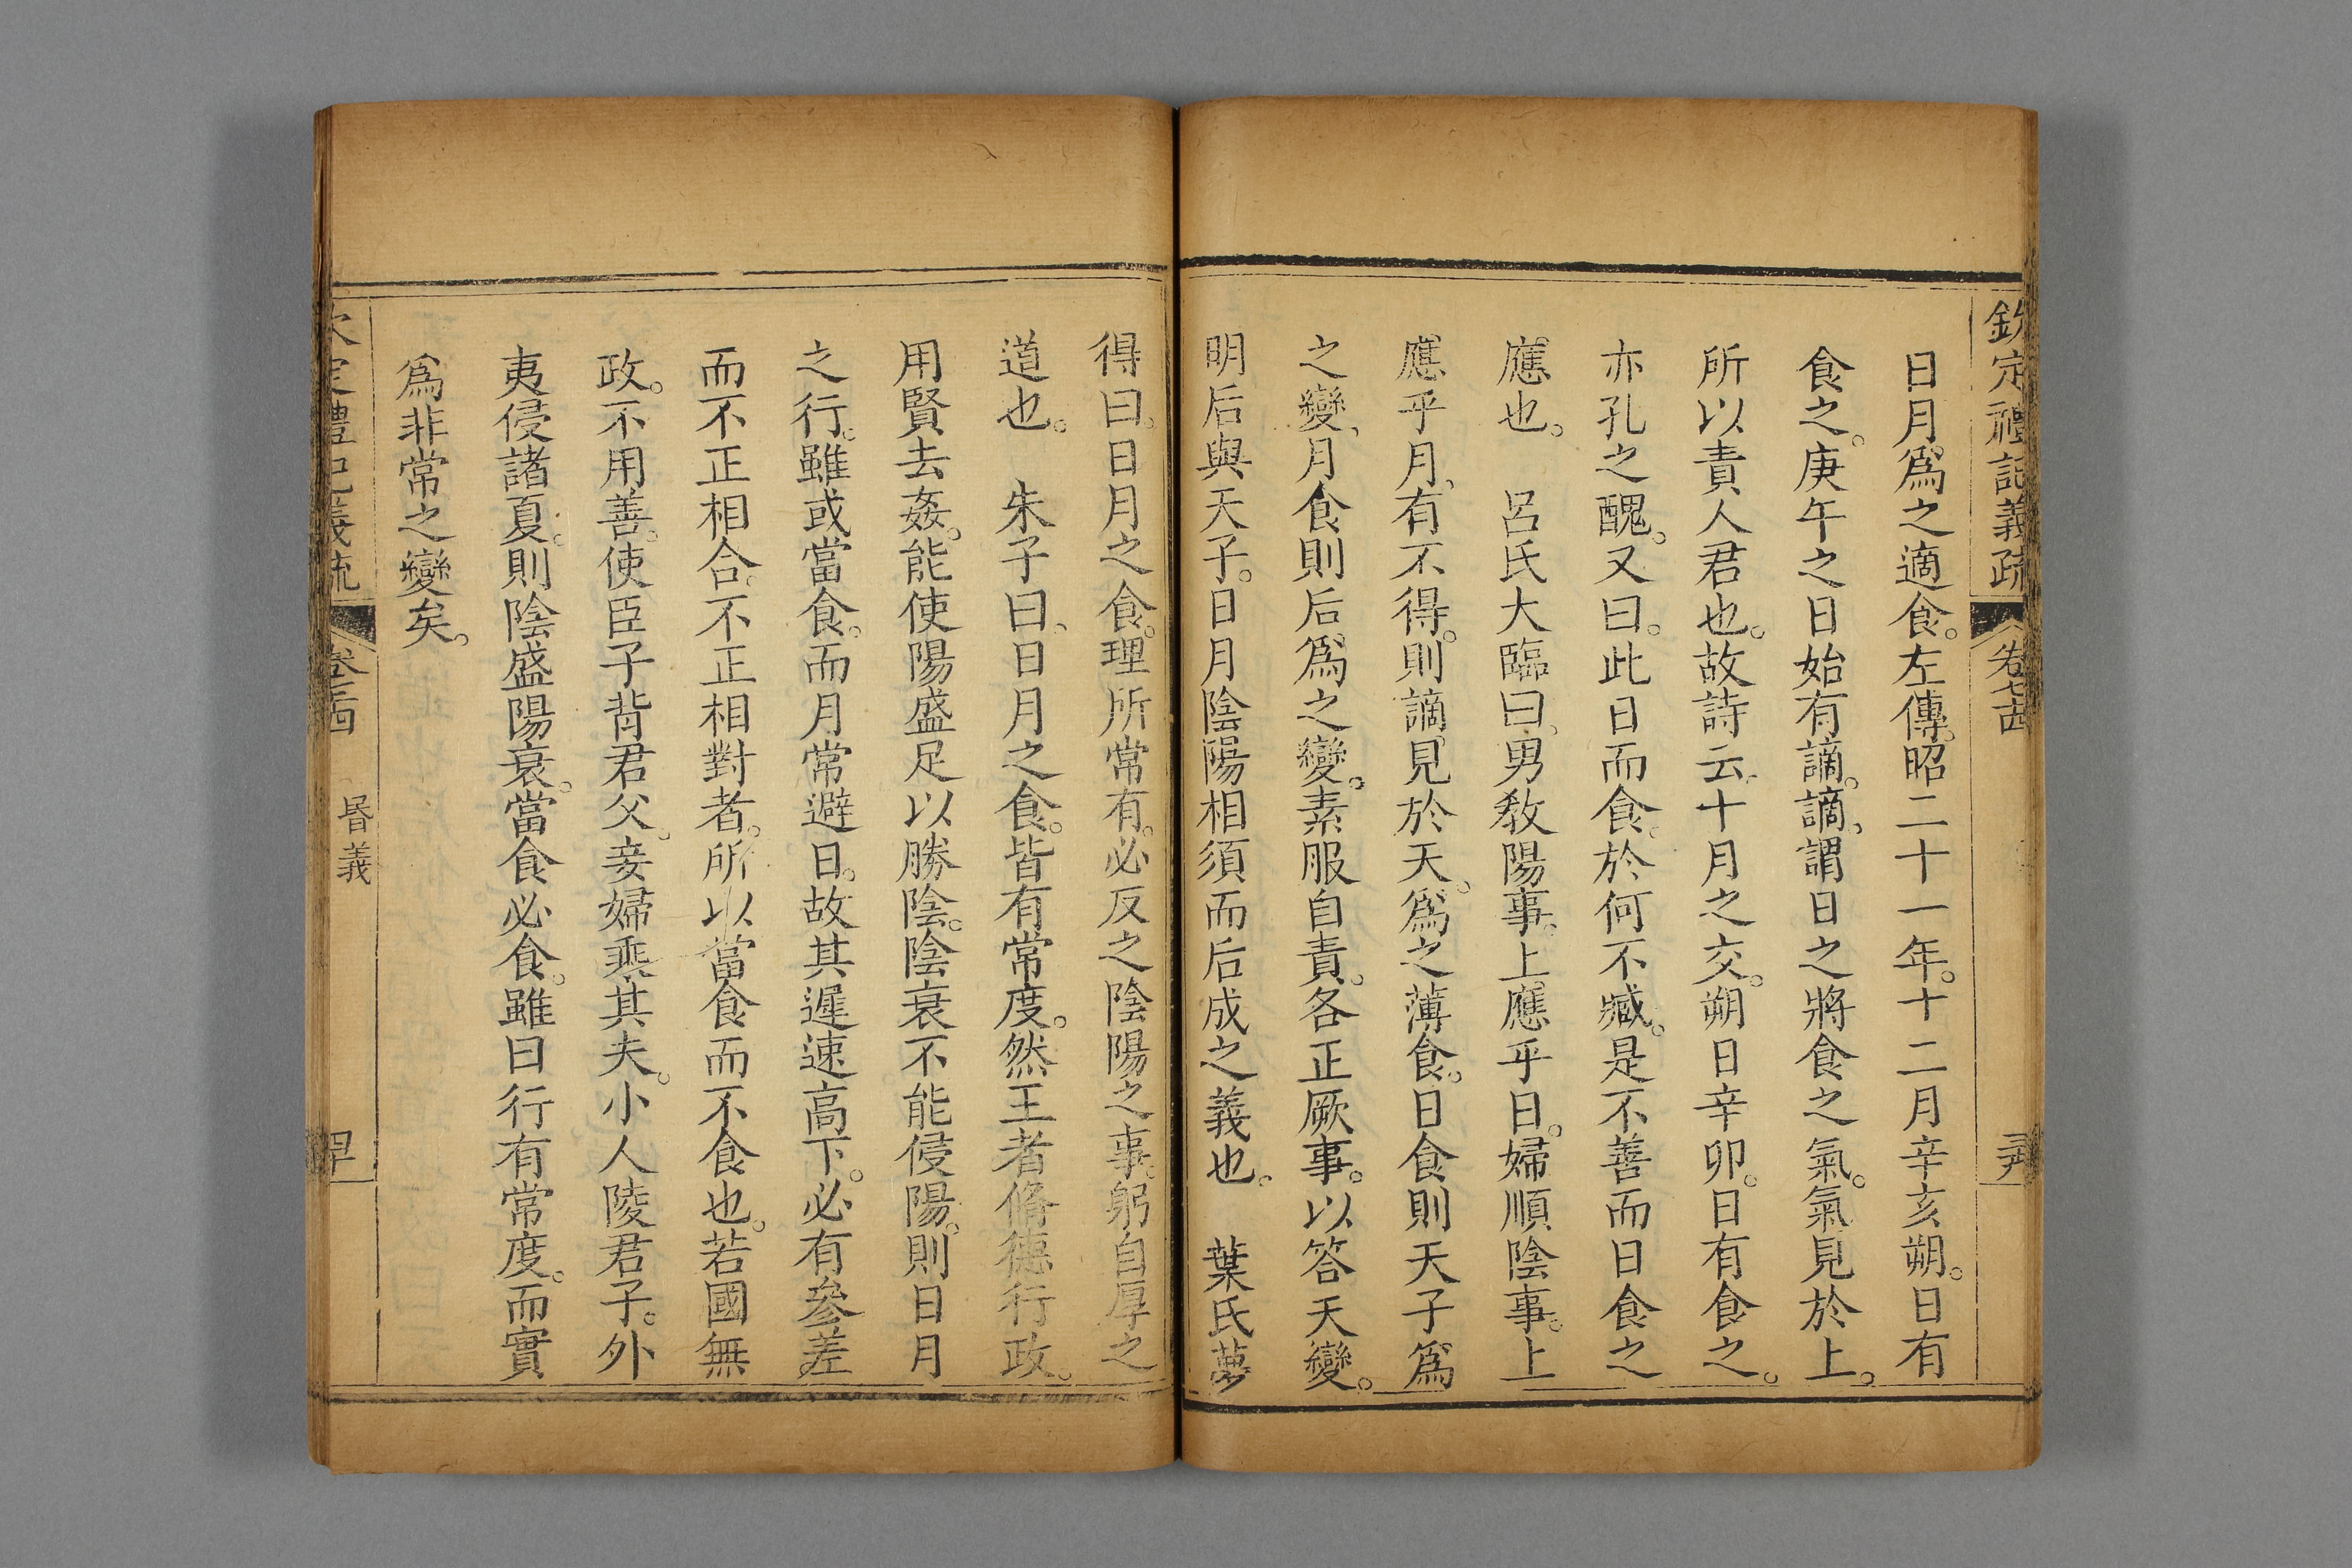 欽定禮記義疏 卷七十四
日月。爲之適食。左傳。昭二十一年。十二月辛亥朔。日有
食之。庚午之日始有謫。謫、謂日之將食之氣。氣見於上。
所以責人君也。故詩云、十月之交。朔日辛卯。日有食之。
亦孔之醜。又曰。此日而食。於何不臧。是不善而日食之
應也。　呂氏大臨曰、男敎陽事。上應乎日。婦順陰事。上
應乎月、有不得。則謫見於天。爲之薄食。日食則天子爲
之變、月食則后爲之變。素服自責。各正厥事。以答天變。
明后與天子。日月陰陽相須而后成之義也。　葉氏夢
得曰。日月之食。理所常有。必反之陰陽之事。躬自厚之
道也。　朱子曰、日月之食。皆有常度。然王者脩德行政。
用賢去姦。能使陽盛足以勝陰。陰衰不能侵陽。則日月
之行。雖或當食。而月常避日。故其遲速高下。必有參差
而不正相合。不正相對者。所以當食而不食也。若國無
政。不用善。使臣子背君父、妾婦乘其夫。小人陵君子。外
夷侵諸夏。則陰盛陽衰。當食必食。雖曰行有常度。而實
爲非常之變矣。
欽定禮記義疏 卷七十四 昬義